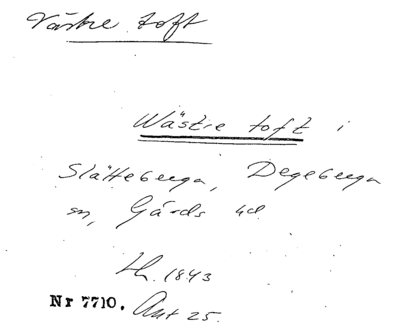 Västre toft
Wästre toft i
Slätteberga, Degeberga
sn, Gärds hd.
Lh. 1843
Nr 7710. Akt 25.